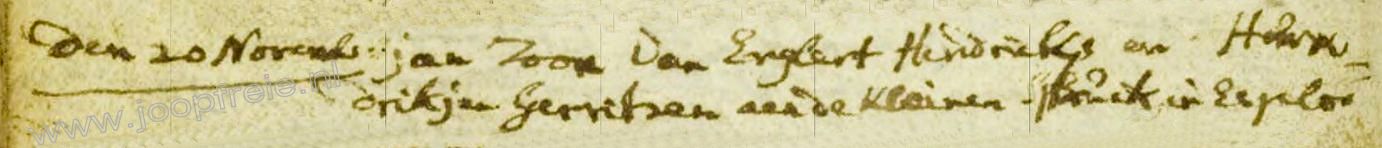 Den 20 Novemb: jan Zoon van Englert Hindricks en Hen=
drikjen Gerritzen aen de kleinen bruck in Esploe
www.joopfreie.nl